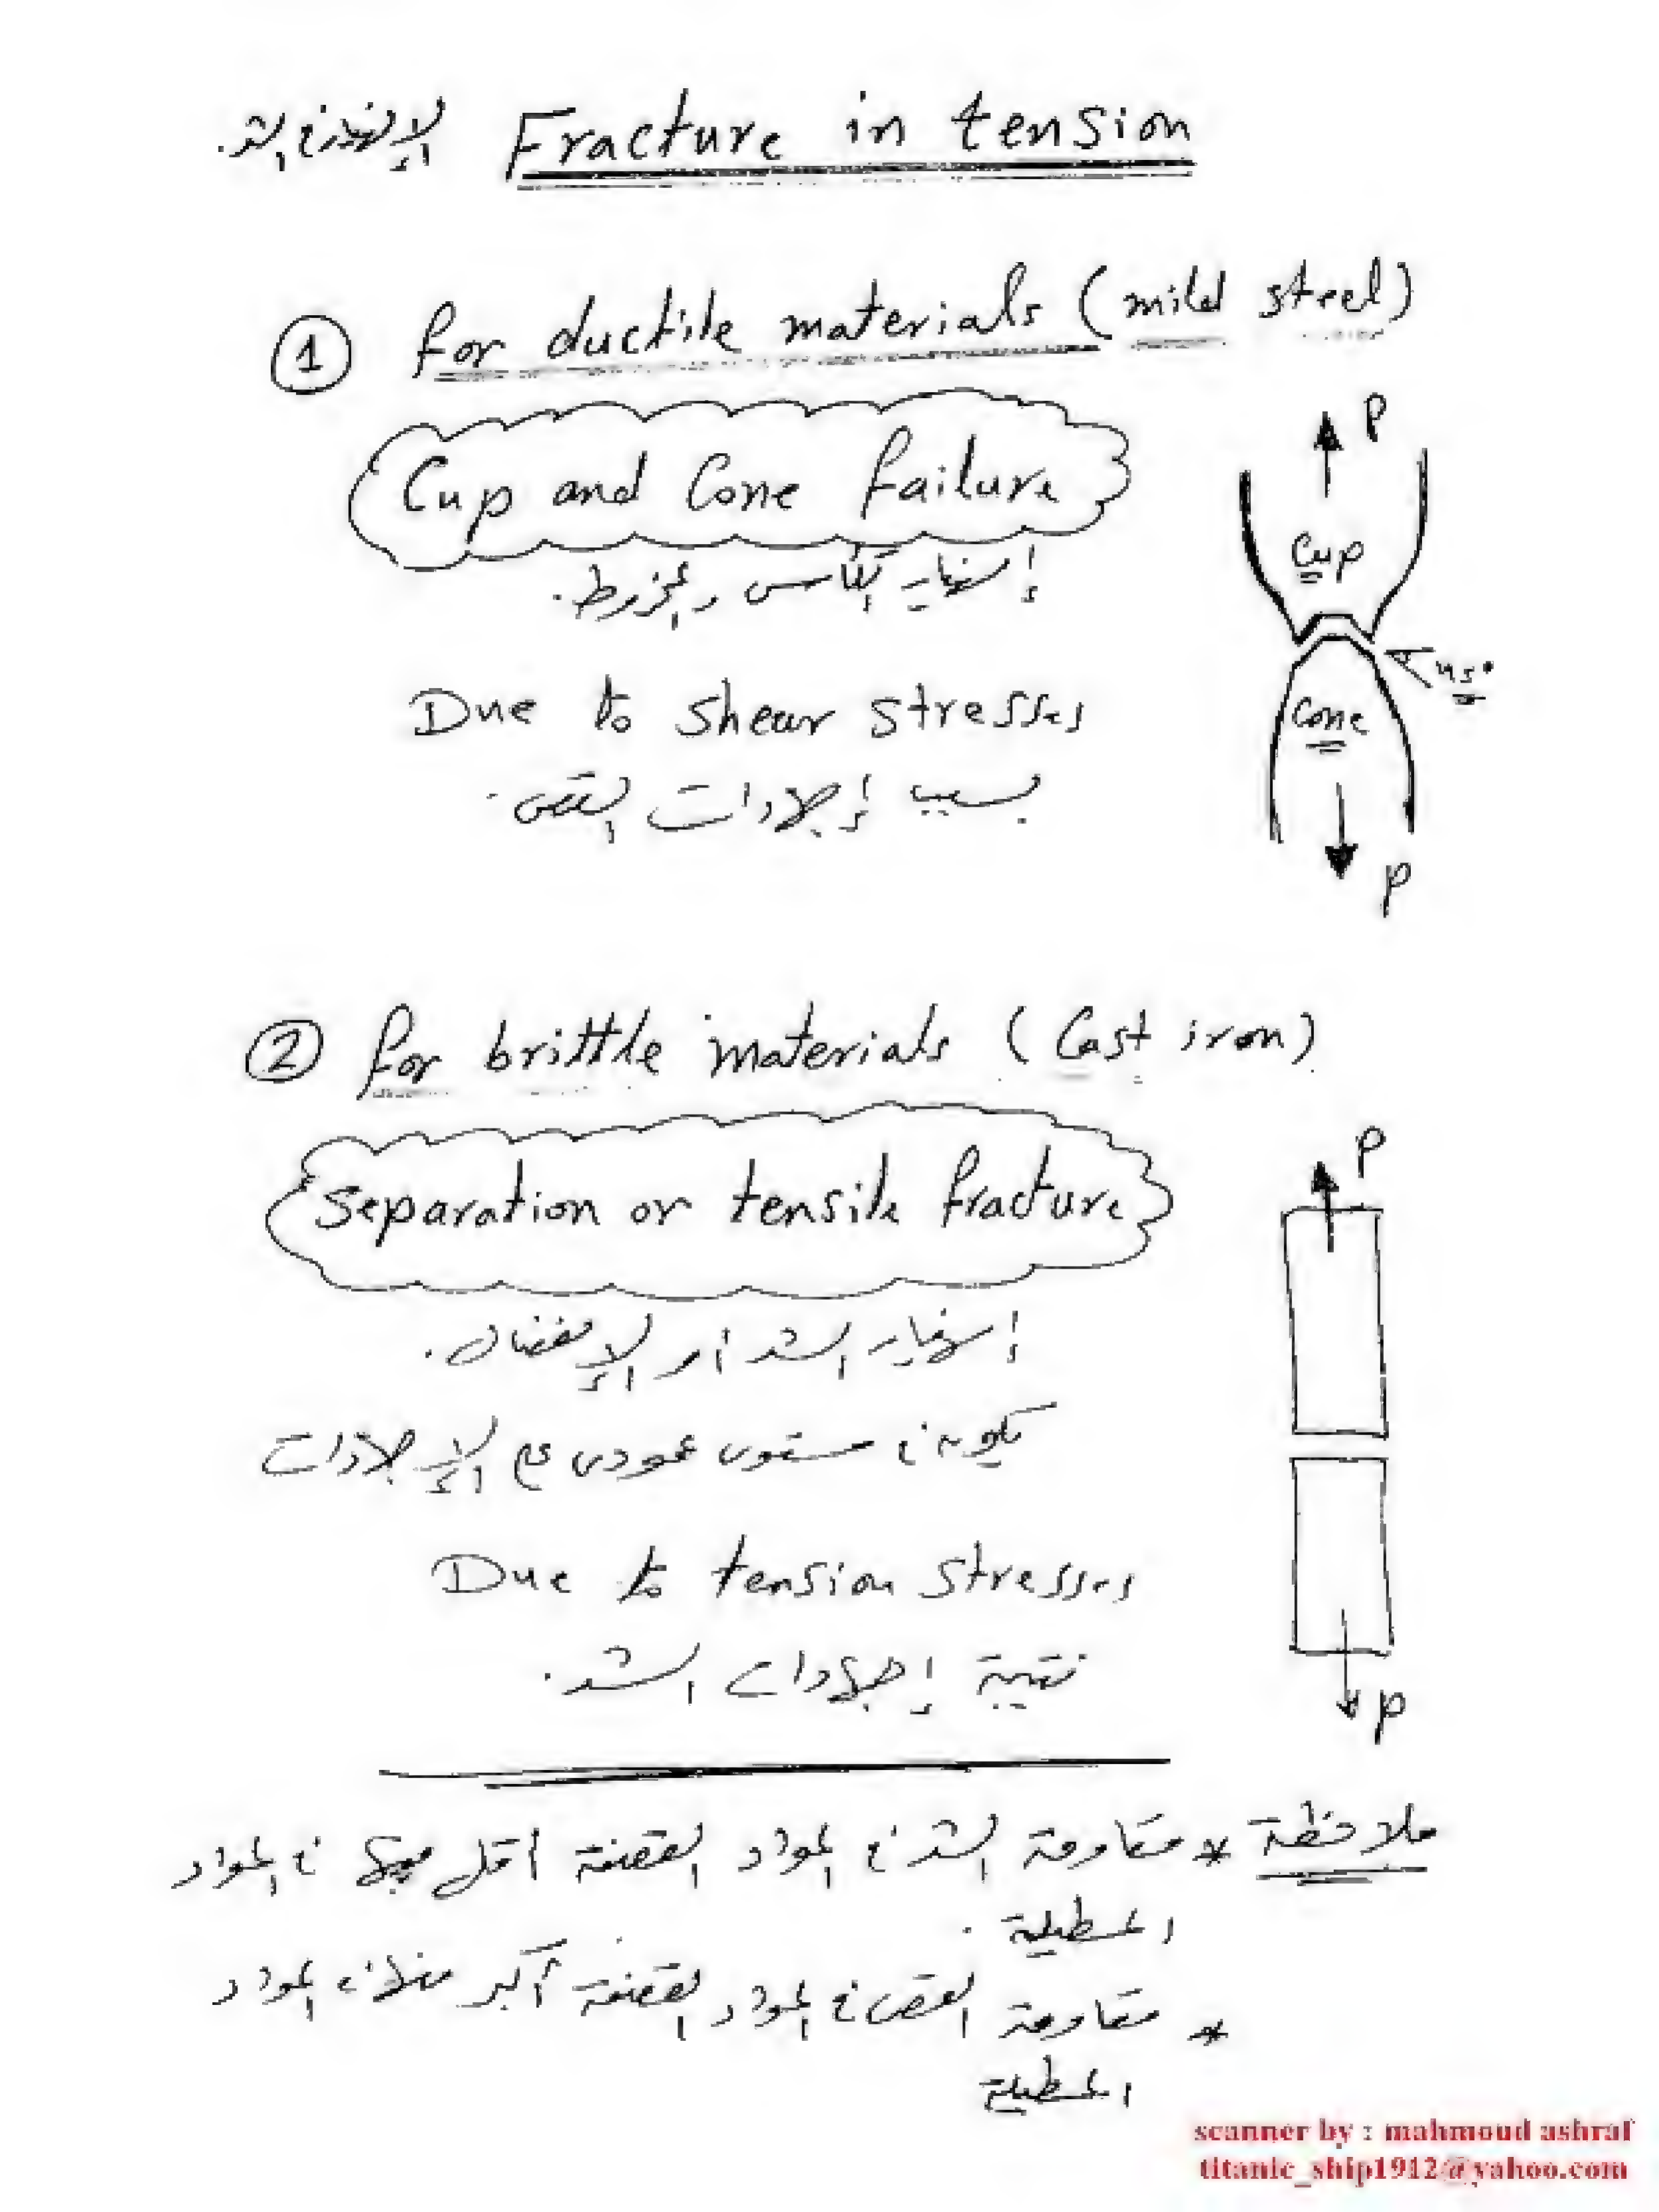 Fracture in tension الإنهيار في الشد.
① for ductile materials (mild steel)
Cup and Cone failure
إنهيار الكأس والمخروط.
Due to shear stresses
بسبب إجهادات القص.
P
Cup
45°
Cone
P
② for brittle materials (Cast iron)
Separation or tensile fracture
إنهيار الشد أو الإنفصال.
يكون في مستوى عمودى مع الإجهادات
Due to tension stresses
نتيجة إجهادات الشد.
P
P
ملاحظة * مقاومة الشد في المواد القصفة أقل منها في المواد
المطيلة.
* مقاومة القص في المواد القصفة أكبر منها في المواد
المطيلة
scanner by : mahmoud ashraf
titanic_ship1912@yahoo.com